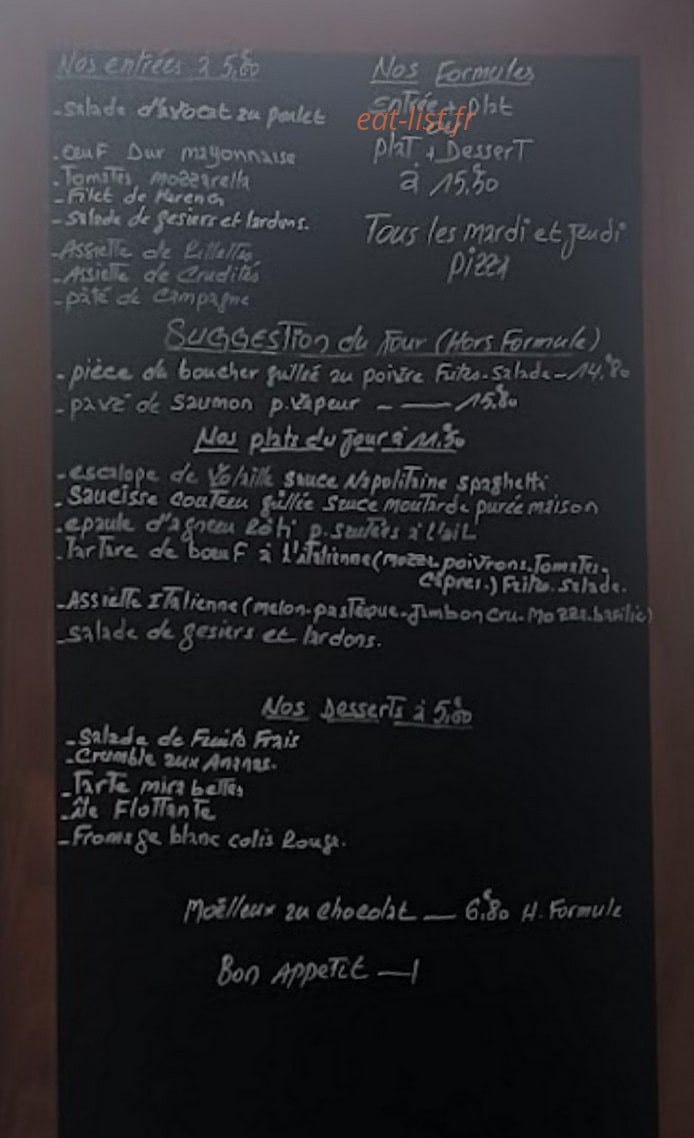 Nos entrées à 5,80
- Salade d'avocat au poulet
- œuf Dur mayonnaise
- Tomates mozzarella
- Filet de Hareng
- Salade de gesiers et lardons.
- Assiette de Rillettes
- Assiette de Crudités
- pâté de campagne
Nos Formules
entrée + plat
ou
plat + Dessert
à 15,50
eat-list.fr
Tous les mardi et jeudi
pizza
Suggestion du Jour (Hors Formule)
- pièce du boucher grillée au poivre Frites-Salade - 14,80
- pavé de Saumon p. vapeur - — 15,80
Nos plats du Jour à 11,50
- escalope de Volaille sauce Napolitaine spaghetti
- Saucisse couteau grillée sauce moutarde purée maison
- epaule d'agneau Rôti p. sautées à l'ail
- Tartare de bœuf à l'italienne (mozza, poivrons, Tomates,
Capres.) Frites. Salade.
- Assiette Italienne (melon-pastèque-Jambon cru-Mozza.basilic)
- salade de gesiers et lardons.
Nos Desserts à 5,80
- Salade de Fruits Frais
- Crumble aux Ananas.
- Tarte mirabelles
- île Flottante
- Fromage blanc colis Rouge.
Moëlleux au chocolat — 6,80 H. Formule
Bon Appetit —!